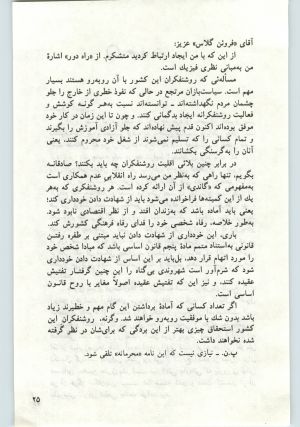 آقای «فروئن گلاس» عزیز:
از این که با من ایجاد ارتباط کردید متشکرم. از «راه دور» اشارهٔ
من به‌مبانی نظری فیزیك است.
مسأله‌ئی که روشنفکران این کشور با آن روبه‌رو هستند بسیار
مهم است. سیاست‌بازان مرتجع در حالی که نفوذ خطری از خارج را جلو
چشمان مردم نگهداشته‌اند ـ توانسته‌اند نسبت به‌هر گونه کوشش و
فعالیت روشنفکران ایجاد بدگمانی کنند. و چون تا این زمان در کار خود
موفق بوده‌اند اکنون قدم پیش نهاده‌اند که جلو آزادی آموزش را بگیرند
و تمام کسانی را که تسلیم نمی‌شوند از شغل خود محروم کنند، یعنی
آنان را به‌گرسنگی بکشانند.
در برابر چنین بلائی اقلیت روشنفکران چه باید بکنند؟ صادقانه
بگویم، تنها راهی که به‌نظر من می‌رسد راه انقلابی عدم همکاری است
به‌مفهومی که «گاندی» از آن ارائه کرده است. هر روشنفکری که به‌هر
یك از این کمیته‌ها فراخوانده می‌شود باید از شهادت دادن خودداری کند؛
یعنی باید آماده باشد که به‌زندان افتد و از نظر اقتصادی نابود شود.
به‌طور خلاصه، رفاه شخصی خود را فدای رفاه فرهنگی کشورش کند.
باری، این خودداری از شهادت دادن نباید مبتنی بر طفره رفتن
قانونی به‌استناد متمم مادهٔ پنجم قانون اساسی باشد که مبادا شخص خود
را مورد اتهام قرار دهد، بل‌باید بر این اساس از شهادت دادن خودداری
کند که شرم‌آور است شهروندی بی‌گناه را این چنین گرفتار تفتیش
عقیده کنند، و نیز این که تفتیش عقیده اصولاً مغایر با روح قانون
اساسی است.
اگر تعداد کسانی که آمادهٔ برداشتن این گام مهم و خطیرند زیاد
باشد بدون شك با موفقیت روبه‌رو خواهند شد. وگرنه، روشنفکران این
کشور استحقاق چیزی بهتر از این بردگی که برای‌شان در نظر گرفته
شده نخواهند داشت.
پ.ن. ـ نیازی نیست که این نامه «محرمانه» تلقی شود.
۲۵